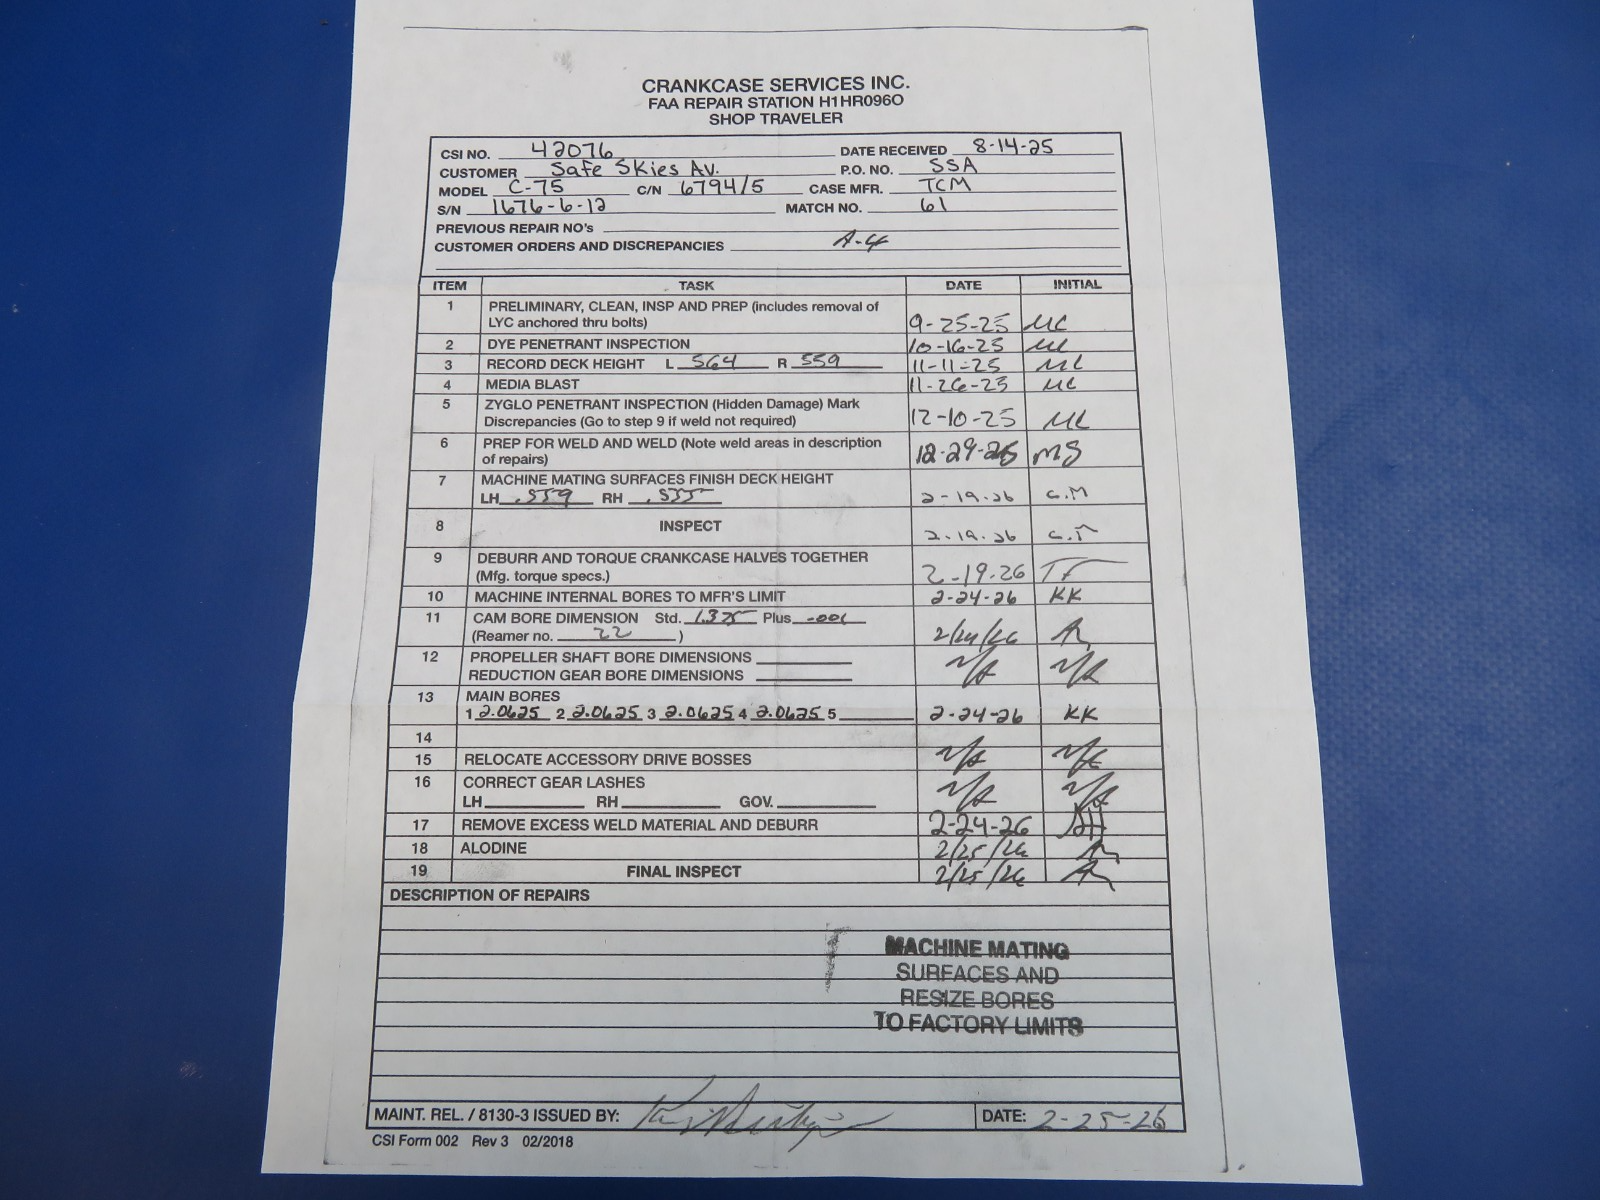 CRANKCASE SERVICES INC.
FAA REPAIR STATION H1HR096O
SHOP TRAVELER
CSI NO. 42076 DATE RECEIVED 8-14-25
CUSTOMER Safe Skies Av. P.O. NO. SSA
MODEL C-75 C/N 6794/5 CASE MFR. TCM
S/N 1676-6-12 MATCH NO. 61
PREVIOUS REPAIR NO's
CUSTOMER ORDERS AND DISCREPANCIES A-4
ITEM TASK DATE INITIAL
1 PRELIMINARY, CLEAN, INSP AND PREP (includes removal of
LYC anchored thru bolts) 9-25-25 MC
2 DYE PENETRANT INSPECTION 10-16-25 MC
3 RECORD DECK HEIGHT L 564 R 559 11-11-25 MC
4 MEDIA BLAST 11-26-25 MC
5 ZYGLO PENETRANT INSPECTION (Hidden Damage) Mark
Discrepancies (Go to step 9 if weld not required) 12-10-25 MC
6 PREP FOR WELD AND WELD (Note weld areas in description
of repairs) 12-29-25 MS
7 MACHINE MATING SURFACES FINISH DECK HEIGHT
LH .559 RH .555 2-19-26 C.M
8 INSPECT 2-19-26
9 DEBURR AND TORQUE CRANKCASE HALVES TOGETHER
(Mfg. torque specs.) 2-19-26 TF
10 MACHINE INTERNAL BORES TO MFR'S LIMIT 2-24-26 KK
11 CAM BORE DIMENSION Std. 1.375 Plus -001
(Reamer no. 22 ) 2/24/26
12 PROPELLER SHAFT BORE DIMENSIONS
REDUCTION GEAR BORE DIMENSIONS N/A N/A
13 MAIN BORES
1 2.0625 2 2.0625 3 2.0625 4 2.0625 5 2-24-26 KK
14
15 RELOCATE ACCESSORY DRIVE BOSSES N/A N/A
16 CORRECT GEAR LASHES
LH RH GOV. N/A N/A
17 REMOVE EXCESS WELD MATERIAL AND DEBURR 2-24-26
18 ALODINE 2/25/26
19 FINAL INSPECT 2/25/26
DESCRIPTION OF REPAIRS
MACHINE MATING
SURFACES AND
RESIZE BORES
TO FACTORY LIMITS
MAINT. REL. / 8130-3 ISSUED BY: DATE: 2-25-26
CSI Form 002 Rev 3 02/2018